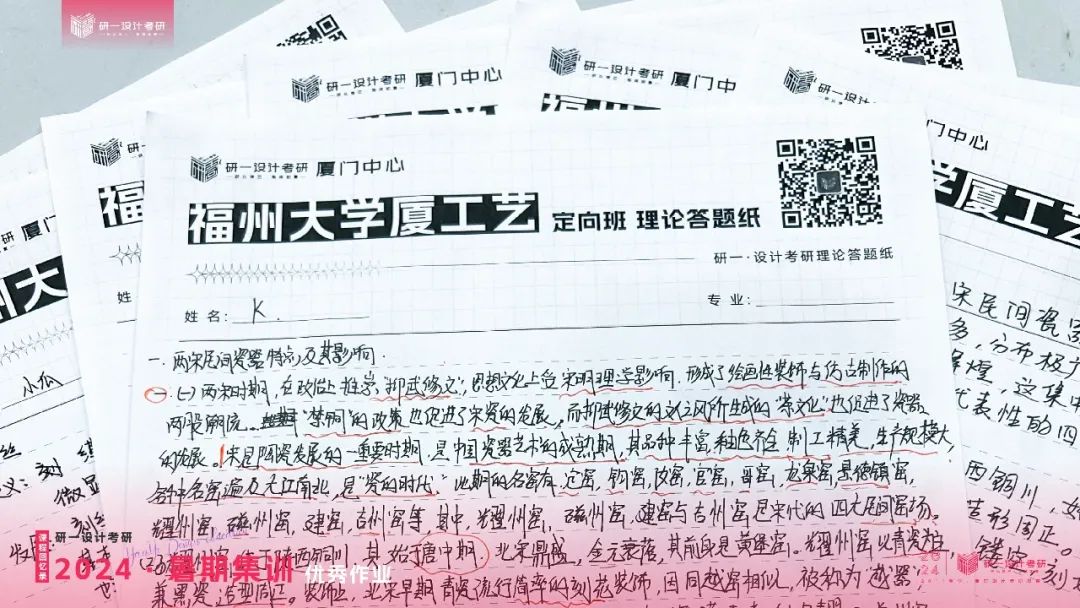 研一设计考研
研一设计考研 厦门中心
研一设计考研 厦门中
研一设计
研一
厦门
门中心
福
州大
学厦工艺
研一设计考研 厦门中心
福州大学厦工艺 定向班 理论答题纸
研一·设计考研理论答题纸
姓名: K 专业:
姓
小瓜
一. 两宋民间瓷器特点及其影响.
(一)两宋时期,在政治上推崇"抑武修文",思想文化上受宋明理学影响.形成了绘画性装饰与仿古制作的
两股潮流。"禁铜"的政策也促进了宋瓷的发展,而抑武修文的文人风所生成的"茶文化"也促进了瓷器
的发展。宋是陶瓷发展的一重要时期,是中国瓷器艺术的成熟期,其品种丰富,釉色齐全,制工精美,生产规模大,
各种名窑遍及大江南北,是"瓷的时代"。此期的名窑有,定窑,钧窑,汝窑,官窑,哥窑,龙泉窑,景德镇窑,
耀州窑,磁州窑,建窑,吉州窑等,其中,耀州窑,磁州窑,建窑与吉州窑是宋代的四大民间窑场。
耀州窑,位于陕西铜川,其始于唐中期,北宋鼎盛,金元衰落,其前身是黄堡窑。耀州窑以青瓷为主,
兼黑瓷,造型周正。装饰上,北宋早期青瓷流行简率的刻花装饰,因同越窑相似,被称为"越器"
宋民间瓷器
多,分布极广
辉煌,这集中
代表性的四
西铜川,始
造形周正。
课程回忆录
研一设计考研
2024 暑期集训 优秀作业